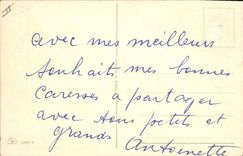 avec mes meilleurs
souhaits mes bonnes
caresses a partager
avec tous petits et
grands Antoinette